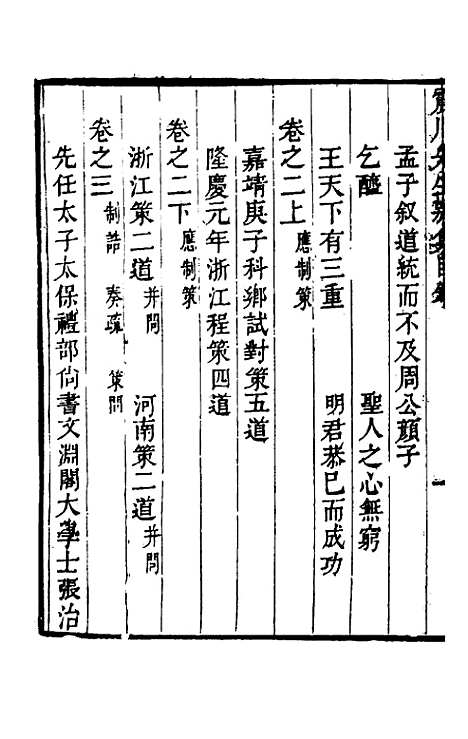 孟子叙道統而不及周公顏子
乞醯 聖人之心無窮
王天下有三重 明君恭己而成功
卷之二上 應制策
嘉靖庚子科鄉試對策五道
隆慶元年浙江程策四道
卷之二下 應制策
浙江策二道 并問 河南策二道 并問
卷之三 制誥 奏疏 策問
先任太子太保禮部尙書文淵閣大學士張治